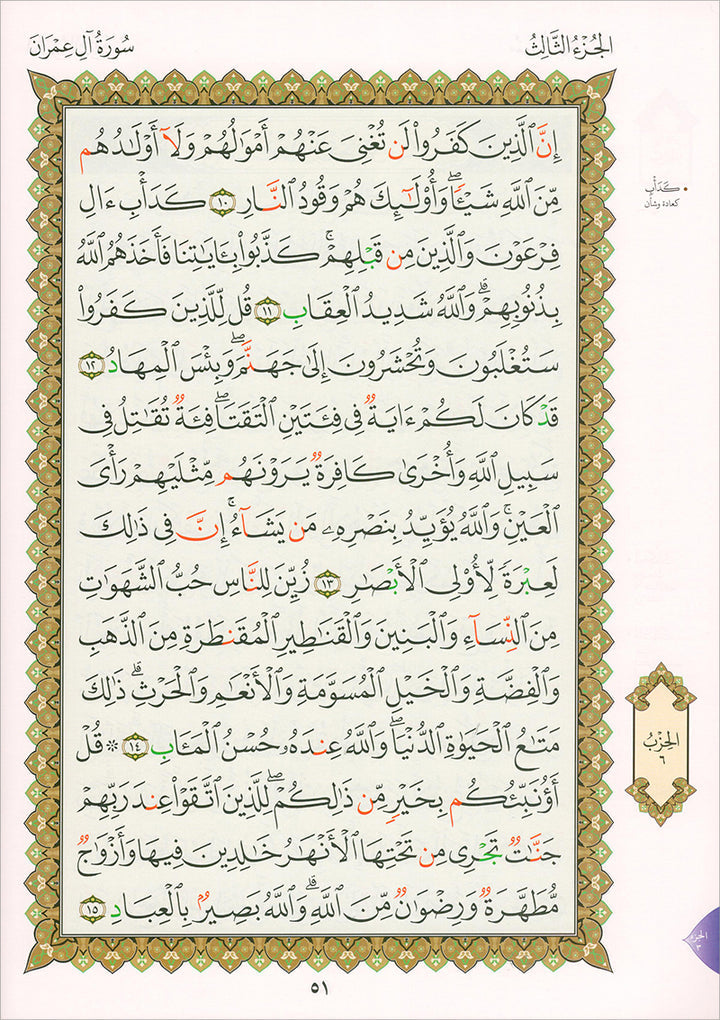 الجُزْءُ الثَّالِثُ
سُورَةُ آلِ عِمْرَانَ
إِنَّ ٱلَّذِينَ كَفَرُوا۟ لَن تُغْنِىَ عَنْهُمْ أَمْوَٰلُهُمْ وَلَآ أَوْلَـٰدُهُم
مِّنَ ٱللَّهِ شَيْـًٔاۖ وَأُو۟لَـٰٓئِكَ هُمْ وَقُودُ ٱلنَّارِ ١٠ كَدَأْبِ ءَالِ
فِرْعَوْنَ وَٱلَّذِينَ مِن قَبْلِهِمْۚ كَذَّبُوا۟ بِـَٔايَـٰتِنَا فَأَخَذَهُمُ ٱللَّهُ
بِذُنُوبِهِمْۗ وَٱللَّهُ شَدِيدُ ٱلْعِقَابِ ١١ قُل لِّلَّذِينَ كَفَرُوا۟
سَتُغْلَبُونَ وَتُحْشَرُونَ إِلَىٰ جَهَنَّمَۖ وَبِئْسَ ٱلْمِهَادُ ١٢
قَدْ كَانَ لَكُمْ ءَايَةٌ فِى فِئَتَيْنِ ٱلْتَقَتَاۖ فِئَةٌ تُقَـٰتِلُ فِى
سَبِيلِ ٱللَّهِ وَأُخْرَىٰ كَافِرَةٌ يَرَوْنَهُم مِّثْلَيْهِمْ رَأْىَ
ٱلْعَيْنِۚ وَٱللَّهُ يُؤَيِّدُ بِنَصْرِهِۦ مَن يَشَآءُۗ إِنَّ فِى ذَٰلِكَ
لَعِبْرَةً لِّأُو۟لِى ٱلْأَبْصَـٰرِ ١٣ زُيِّنَ لِلنَّاسِ حُبُّ ٱلشَّهَوَٰتِ
مِنَ ٱلنِّسَآءِ وَٱلْبَنِينَ وَٱلْقَنَـٰطِيرِ ٱلْمُقَنطَرَةِ مِنَ ٱلذَّهَبِ
وَٱلْفِضَّةِ وَٱلْخَيْلِ ٱلْمُسَوَّمَةِ وَٱلْأَنْعَـٰمِ وَٱلْحَرْثِۗ ذَٰلِكَ
مَتَـٰعُ ٱلْحَيَوٰةِ ٱلدُّنْيَاۖ وَٱللَّهُ عِندَهُۥ حُسْنُ ٱلْمَـَٔابِ ١٤ ۞ قُلْ
أَؤُنَبِّئُكُم بِخَيْرٍ مِّن ذَٰلِكُمْۖ لِلَّذِينَ ٱتَّقَوْا۟ عِندَ رَبِّهِمْ
جَنَّـٰتٌ تَجْرِى مِن تَحْتِهَا ٱلْأَنْهَـٰرُ خَـٰلِدِينَ فِيهَا وَأَزْوَٰجٌ
مُّطَهَّرَةٌ وَرِضْوَٰنٌ مِّنَ ٱللَّهِۗ وَٱللَّهُ بَصِيرٌۢ بِٱلْعِبَادِ ١٥
• كَدَأْبِ
كعادة وشأن
الحِزْبُ
٦
الجزء
٣
٥١